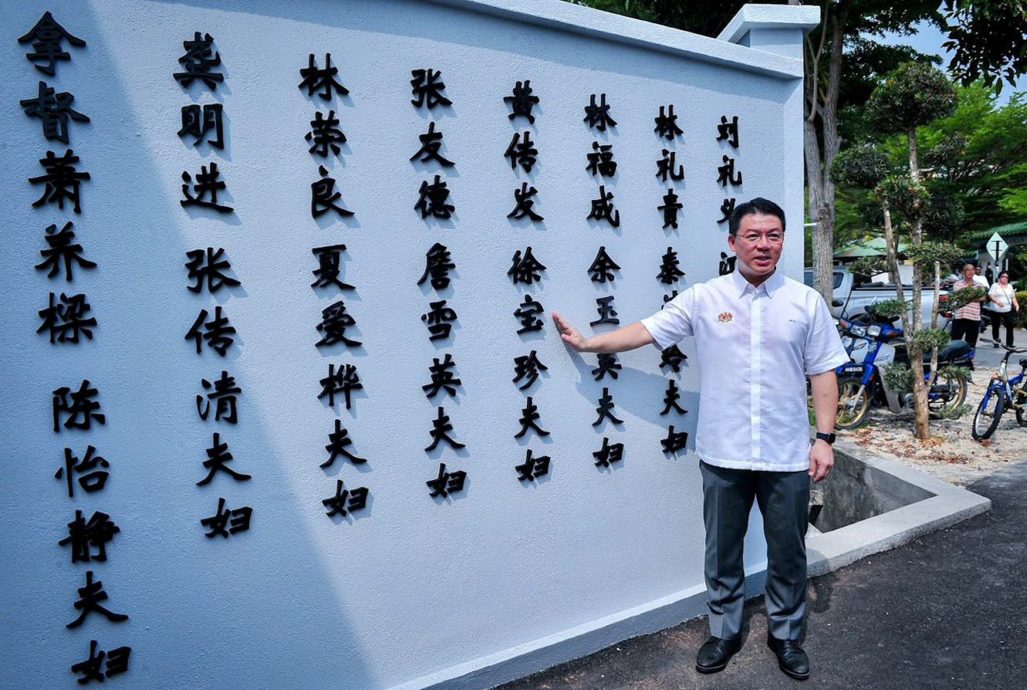 拿督萧养樑 陈怡静夫妇
龚明进 张传清夫妇
林荣良 夏爱桦夫妇
张友德 詹雪英夫妇
黄传发 徐宝珍夫妇
林福成 余玉英夫妇
林礼贵 秦 夫妇
刘礼义